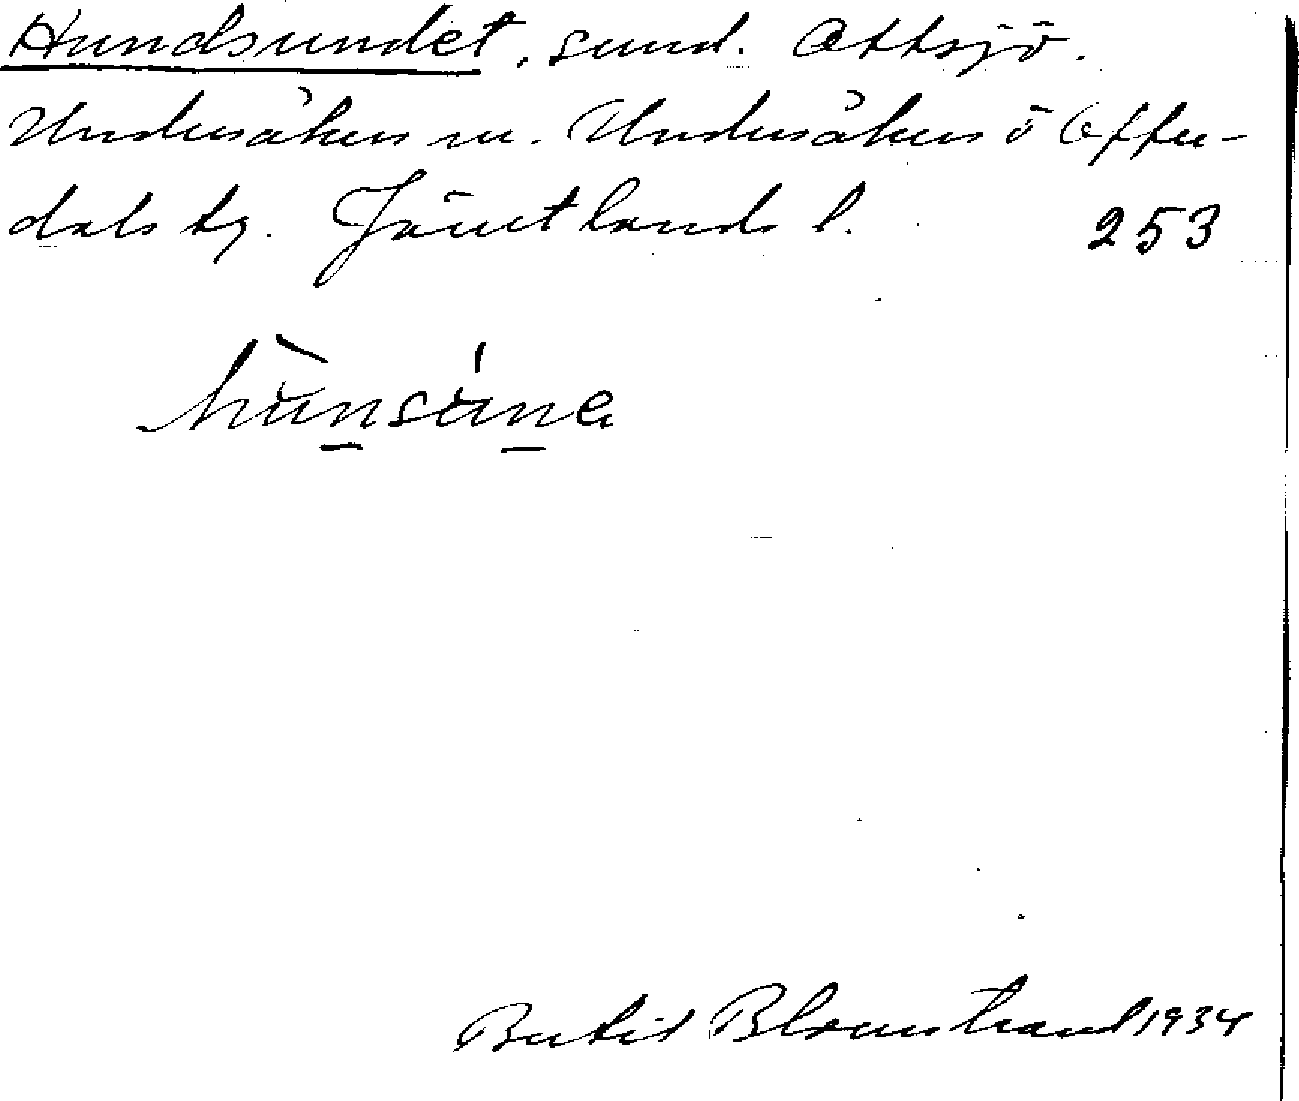 Hundsundet, sund. Ottsjö.
Undersåkers sn. Undersåkers o Offer-
dals tg. Jämtlands l. 253
hùnsúna
Bertil Blomstrand 1934